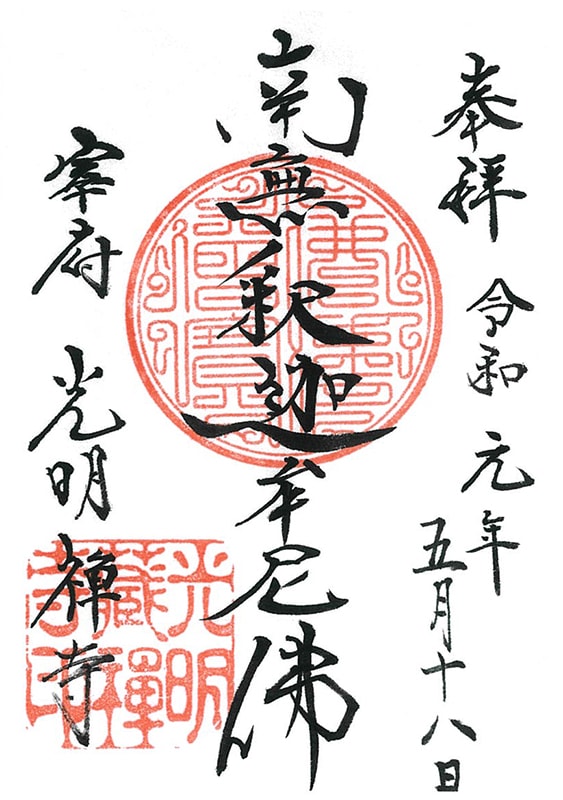 奉拝 令和元年
五月十八日
南無釈迦牟尼佛
宰府 光明禅寺
光明
藏禪
寺印